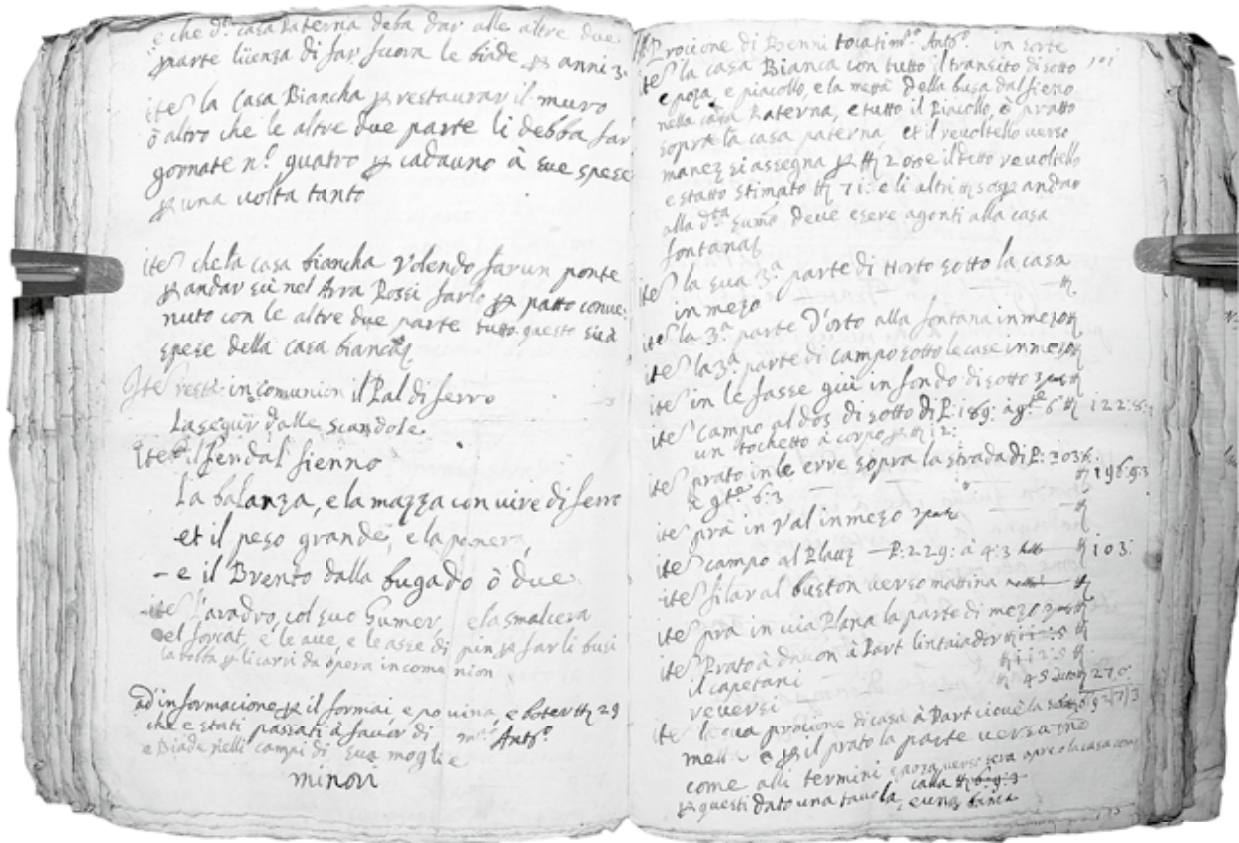 e che d.ª casa Paterna deba dar alle altre due
parte licenza di far fuora le biade p anni 3.
ite la Casa Biancha p restaurar il muro
ò altro che le altre due parte li debba far
gornate n.º quatro p cadauno à sue spese
p una volta tanto
ite che la casa biancha volendo far un ponte
p andar sù nel Arra Rossi farlo p patto conve:
nuto con le altre due parte tutto questo sia à
spese della casa biancha
Ite resti in comunion il Pal di ferro
La seguir dalle scandole
Ite il Feral fienno
La balanza, e la mazza con vire di ferro
et il peso grande, e la ponera,
- e il Brento dalla bugado ò due
ite l'aradro, col suo Gumer, e la smaliera
el forcat, e le aue, e le asse di pin p far li busi
la bobba p li carri da opera in comunion
ad informacione p il formai e povina, e boter 29
che e stati passati à favor di m.º Ant.º
e Biade nelli campi di sua moglie
minori
Procione di Benni tocati m.º Ant.º in sorte
ite la casa Bianca con tutto il transito di sotto 101
e poza, e piacollo, e la metà della busa dal fieno
nella casa Paterna, e tutto il Piacollo, ò pratto
sopra la casa paterna et il revoltello verso
manez si assegna p 2 osse il detto revoltello
e statto stimato 71: e li altri p andar
alla d.ta suma deve esere agonti alla casa
fontana
ite la sua 3.ª parte di Horto sotto la casa
in mezo
ite la 3.ª parte d'orto alla fontana in mezo
ite la 3.ª parte di campo sotto le case in mezo
ite in le fasse giù in fondo di sotto
ite campo al dos di sotto di P: 189: à g.te 6 122:8:
un tochetto à corpo p 12:
ite prato in le erve sopra la strada di P: 303
g.te 6:3 196:9:3
ite prà in Val in mezo
ite campo al Plauz P: 229: à 4:3 103:
ite filar al buston verso mattina
ite prà in via Plana la parte di mezo
ite Prato à dauon à Part
il capetani
reversi 270:
ite la sua procione di casa à Part cioue la
mella e p il prato la parte verso
come alli termini e poza verso sera apreo la casa
p questi dato una tavola, e una banca